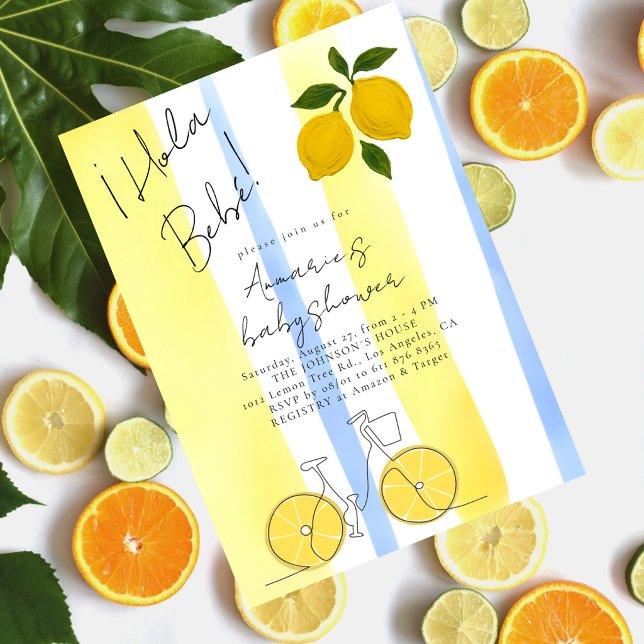 ¡Hola
Bebé!
please join us for
Anmarie's
babyshower
Saturday, August 27, from 2 - 4 PM
THE JOHNSON'S HOUSE
1012 Lemon Tree Rd., Los Angeles, CA
RSVP by 08/01 to 611 876 8365
REGISTRY at Amazon & Target